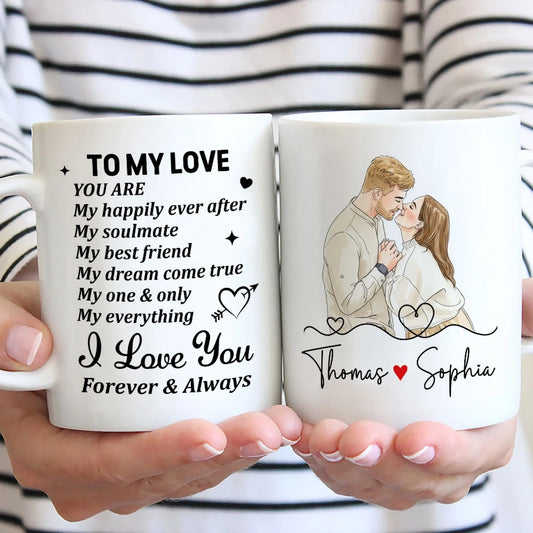 TO MY LOVE
YOU ARE
My happily ever after
My soulmate
My best friend
My dream come true
My one & only
My everything
I Love You
Forever & Always
Thomas Sophia